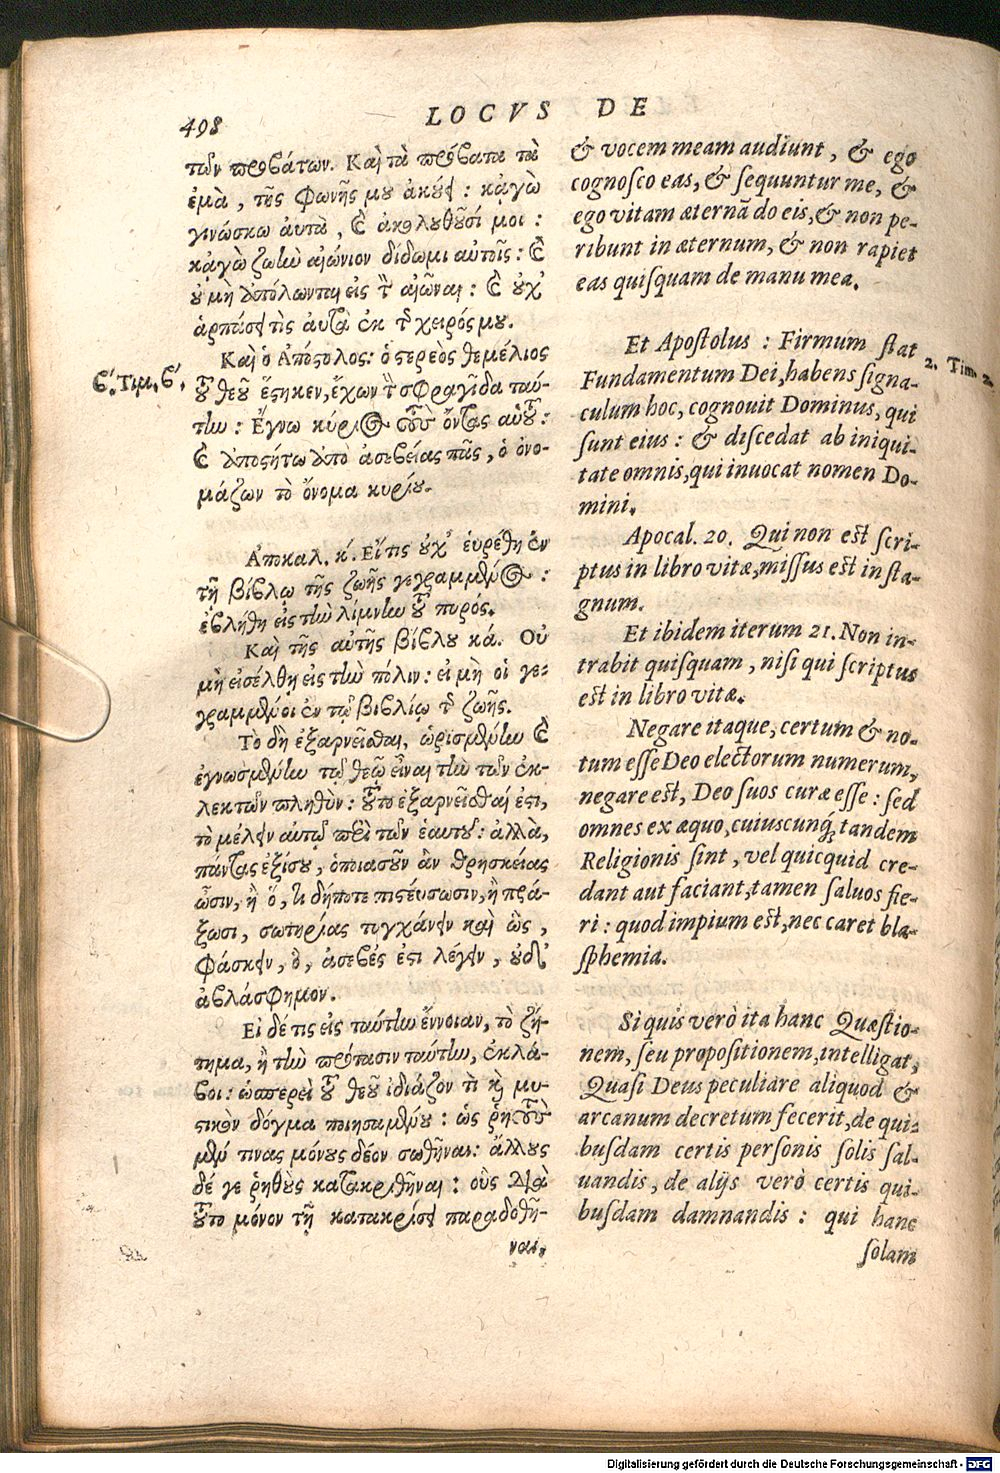 498
LOCVS DE
τῶν προβάτων. Καὶ τὰ πρόβατα τὰ
ἐμὰ, τῆς φωνῆς μου ἀκούει: κᾀγὼ
γινώσκω αὐτὰ, καὶ ἀκολουθοῦσί μοι:
κᾀγὼ ζωὴν αἰώνιον δίδωμι αὐτοῖς: καὶ
οὐ μὴ ἀπόλωνται εἰς τὸν αἰῶναι: καὶ οὐχ
ἁρπάσει τὶς αὐτὰ ἐκ τῆς χειρός μου.
Καὶ ὁ Ἀπόστολος: ὁ στερεὸς θεμέλιος
ϐ΄. Τιμ. ϐ΄.
τοῦ θεοῦ ἕστηκεν, ἔχων τὴν σφραγῖδα ταύ-
την: Ἔγνω κύριος τοὺς ὄντας αὐτοῦ:
καὶ ἀποστήτω ἀπὸ ἀσεβείας πᾶς, ὁ ὀνο-
μάζων τὸ ὄνομα κυρίου.
Ἀποκαλ. κ΄. Εἴ τις οὐχ εὑρέθη ἐν
τῇ βίβλῳ τῆς ζωῆς γεγραμμένος:
ἐβλήθη εἰς τὴν λίμνην τοῦ πυρός.
Καὶ τῆς αὐτῆς βίβλου κά. Οὐ
μὴ εἰσέλθῃ εἰς τὴν πόλιν: εἰ μὴ οἱ γε-
γραμμένοι ἐν τῷ βιβλίῳ τῆς ζωῆς.
Τὸ δὴ ἐξαρνεῖσθαι, ὡρισμένην καὶ
ἐγνωσμένην τῷ θεῷ εἶναι τὴν τῶν ἐκ-
λεκτῶν πληθὺν: τοῦτο ἐξαρνεῖσθαί ἐστι,
τὸ μέλειν αὐτῷ περὶ τῶν ἑαυτοῦ: ἀλλὰ,
πάντας ἐξίσου, ὁποιασοῦν ἂν θρησκείας
ὦσιν, ἢ ὅ, τι δήποτε πιστεύσωσιν, ἢ πρά-
ξωσι, σωτηρίας τυγχάνειν καὶ ὣς,
φάσκειν, ὃ, ἀσεβές ἐστι λέγειν, οὐδ'
ἀβλάσφημον.
Εἰ δέ τις εἰς ταύτην ἔννοιαν, τὸ ζή-
τημα, ἢ τὴν πρότασιν ταύτην, ἐκλά-
βοι: ὡσπερεὶ τοῦ θεοῦ ἰδιάζον τὶ καὶ μυ-
στικὸν δόγμα ποιησαμένου: ὡς ῥητοὺς
μέν τινας μόνους δέον σωθῆναι: ἄλλους
δέ γε ῥηθοὺς κατακριθῆναι: οὓς διὰ
τοῦτο μόνον τῇ κατακρίσει παραδοθῆ-
ναι,
& vocem meam audiunt, & ego
cognosco eas, & sequuntur me, &
ego vitam æternã do eis, & non pe-
ribunt in æternum, & non rapiet
eas quisquam de manu mea.
Et Apostolus: Firmum stat
2. Tim. 2.
Fundamentum Dei, habens signa-
culum hoc, cognouit Dominus, qui
sunt eius: & discedat ab iniqui-
tate omnis, qui inuocat nomen Do-
mini.
Apocal. 20. Qui non est scri-
ptus in libro vitæ, missus est in sta-
gnum.
Et ibidem iterum 21. Non in-
trabit quisquam, nisi qui scriptus
est in libro vitæ.
Negare itaque, certum & no-
tum esse Deo electorum numerum,
negare est, Deo suos curæ esse: sed
omnes ex æquo, cuiuscunq; tandem
Religionis sint, vel quicquid cre-
dant aut faciant, tamen saluos fie-
ri: quod impium est, nec caret bla-
sphemia.
Si quis verò ita hanc Quæstio-
nem, seu propositionem, intelligat,
Quasi Deus peculiare aliquod &
arcanum decretum fecerit, de qui-
busdam certis personis solis sal-
uandis, de alijs verò certis qui-
busdam damnandis: qui hanc
solam
Digitalisierung gefördert durch die Deutsche Forschungsgemeinschaft - DFG